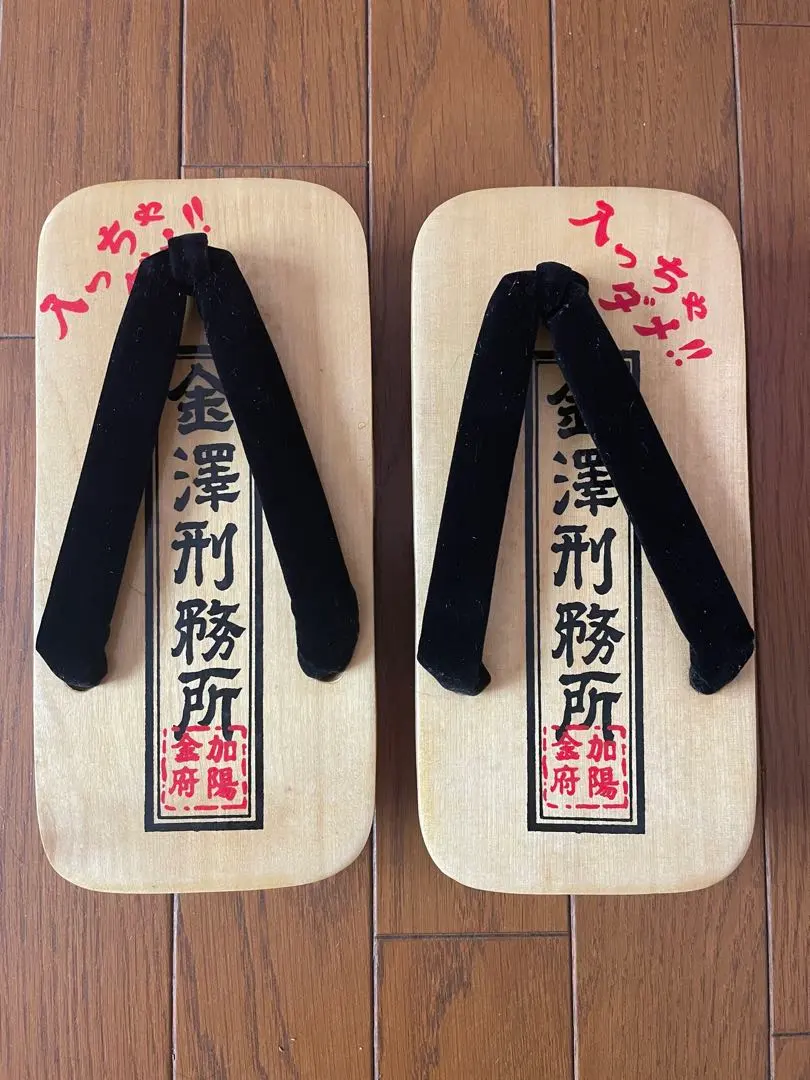 入っちゃ
!!
金澤刑務所
加陽
金府
入っちゃ
ダメ!!
金澤刑務所
加陽
金府